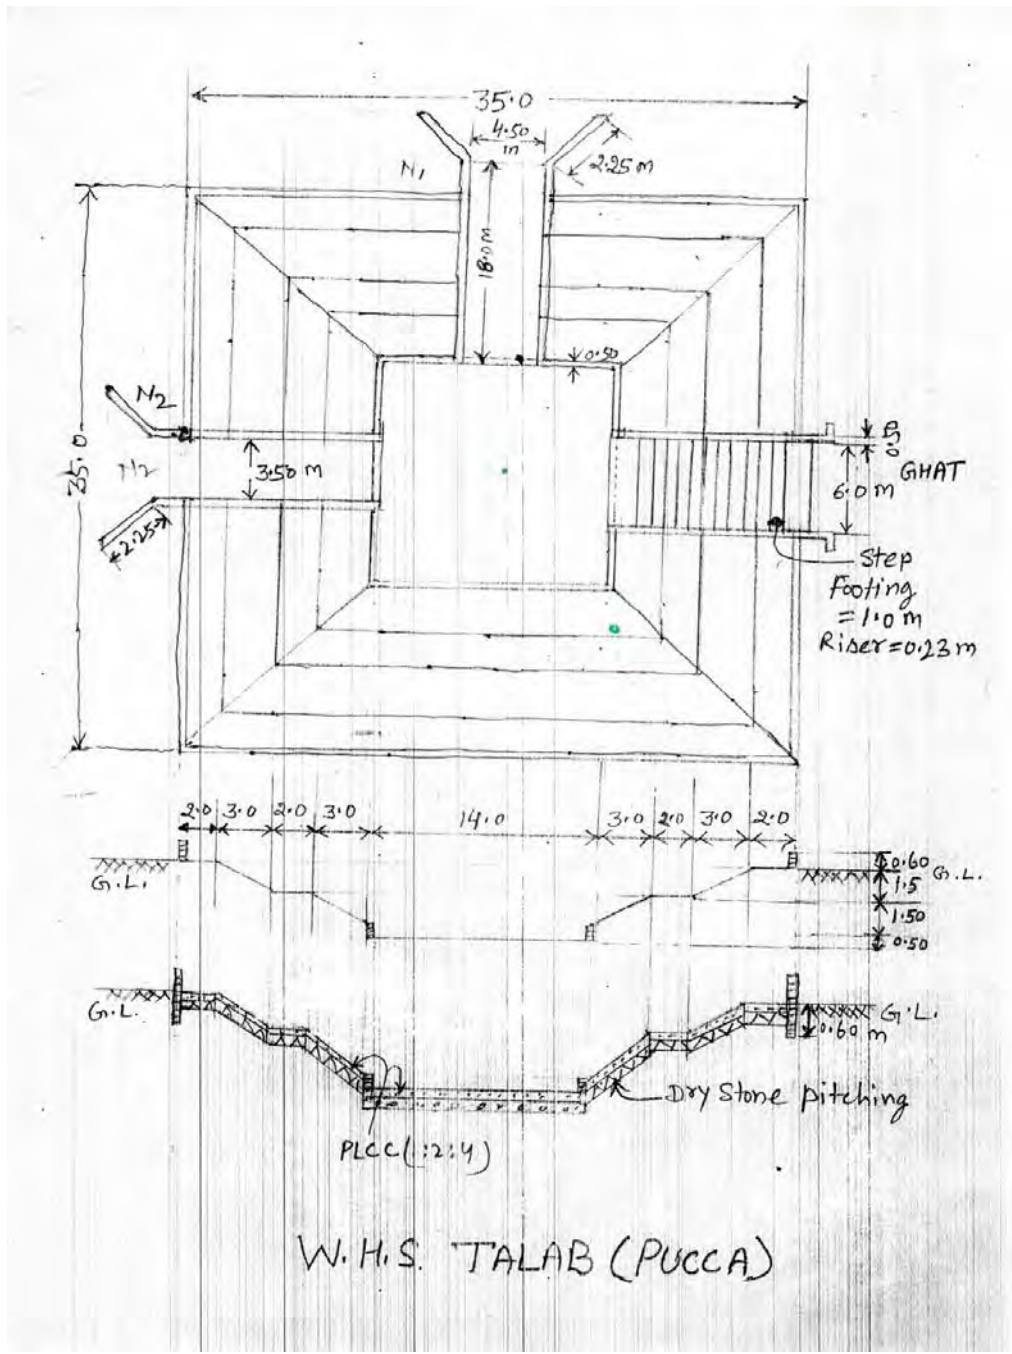 35.0
4.50
m
2.25m
N1
18.0m
0.50
35.0
N2
N2
3.50 m
2.25
GHAT
6.0 m
Step
Footing
=1.0 m
Riser=0.23m
2.0 3.0 2.0 3.0 14.0 3.0 2.0 3.0 2.0
G.L.
0.60 G.L.
1.5
1.50
0.50
G.L.
G.L.
0.60 m
Dry Stone pitching
PLCC(1:2:4)
W.H.S. TALAB (PUCCA)